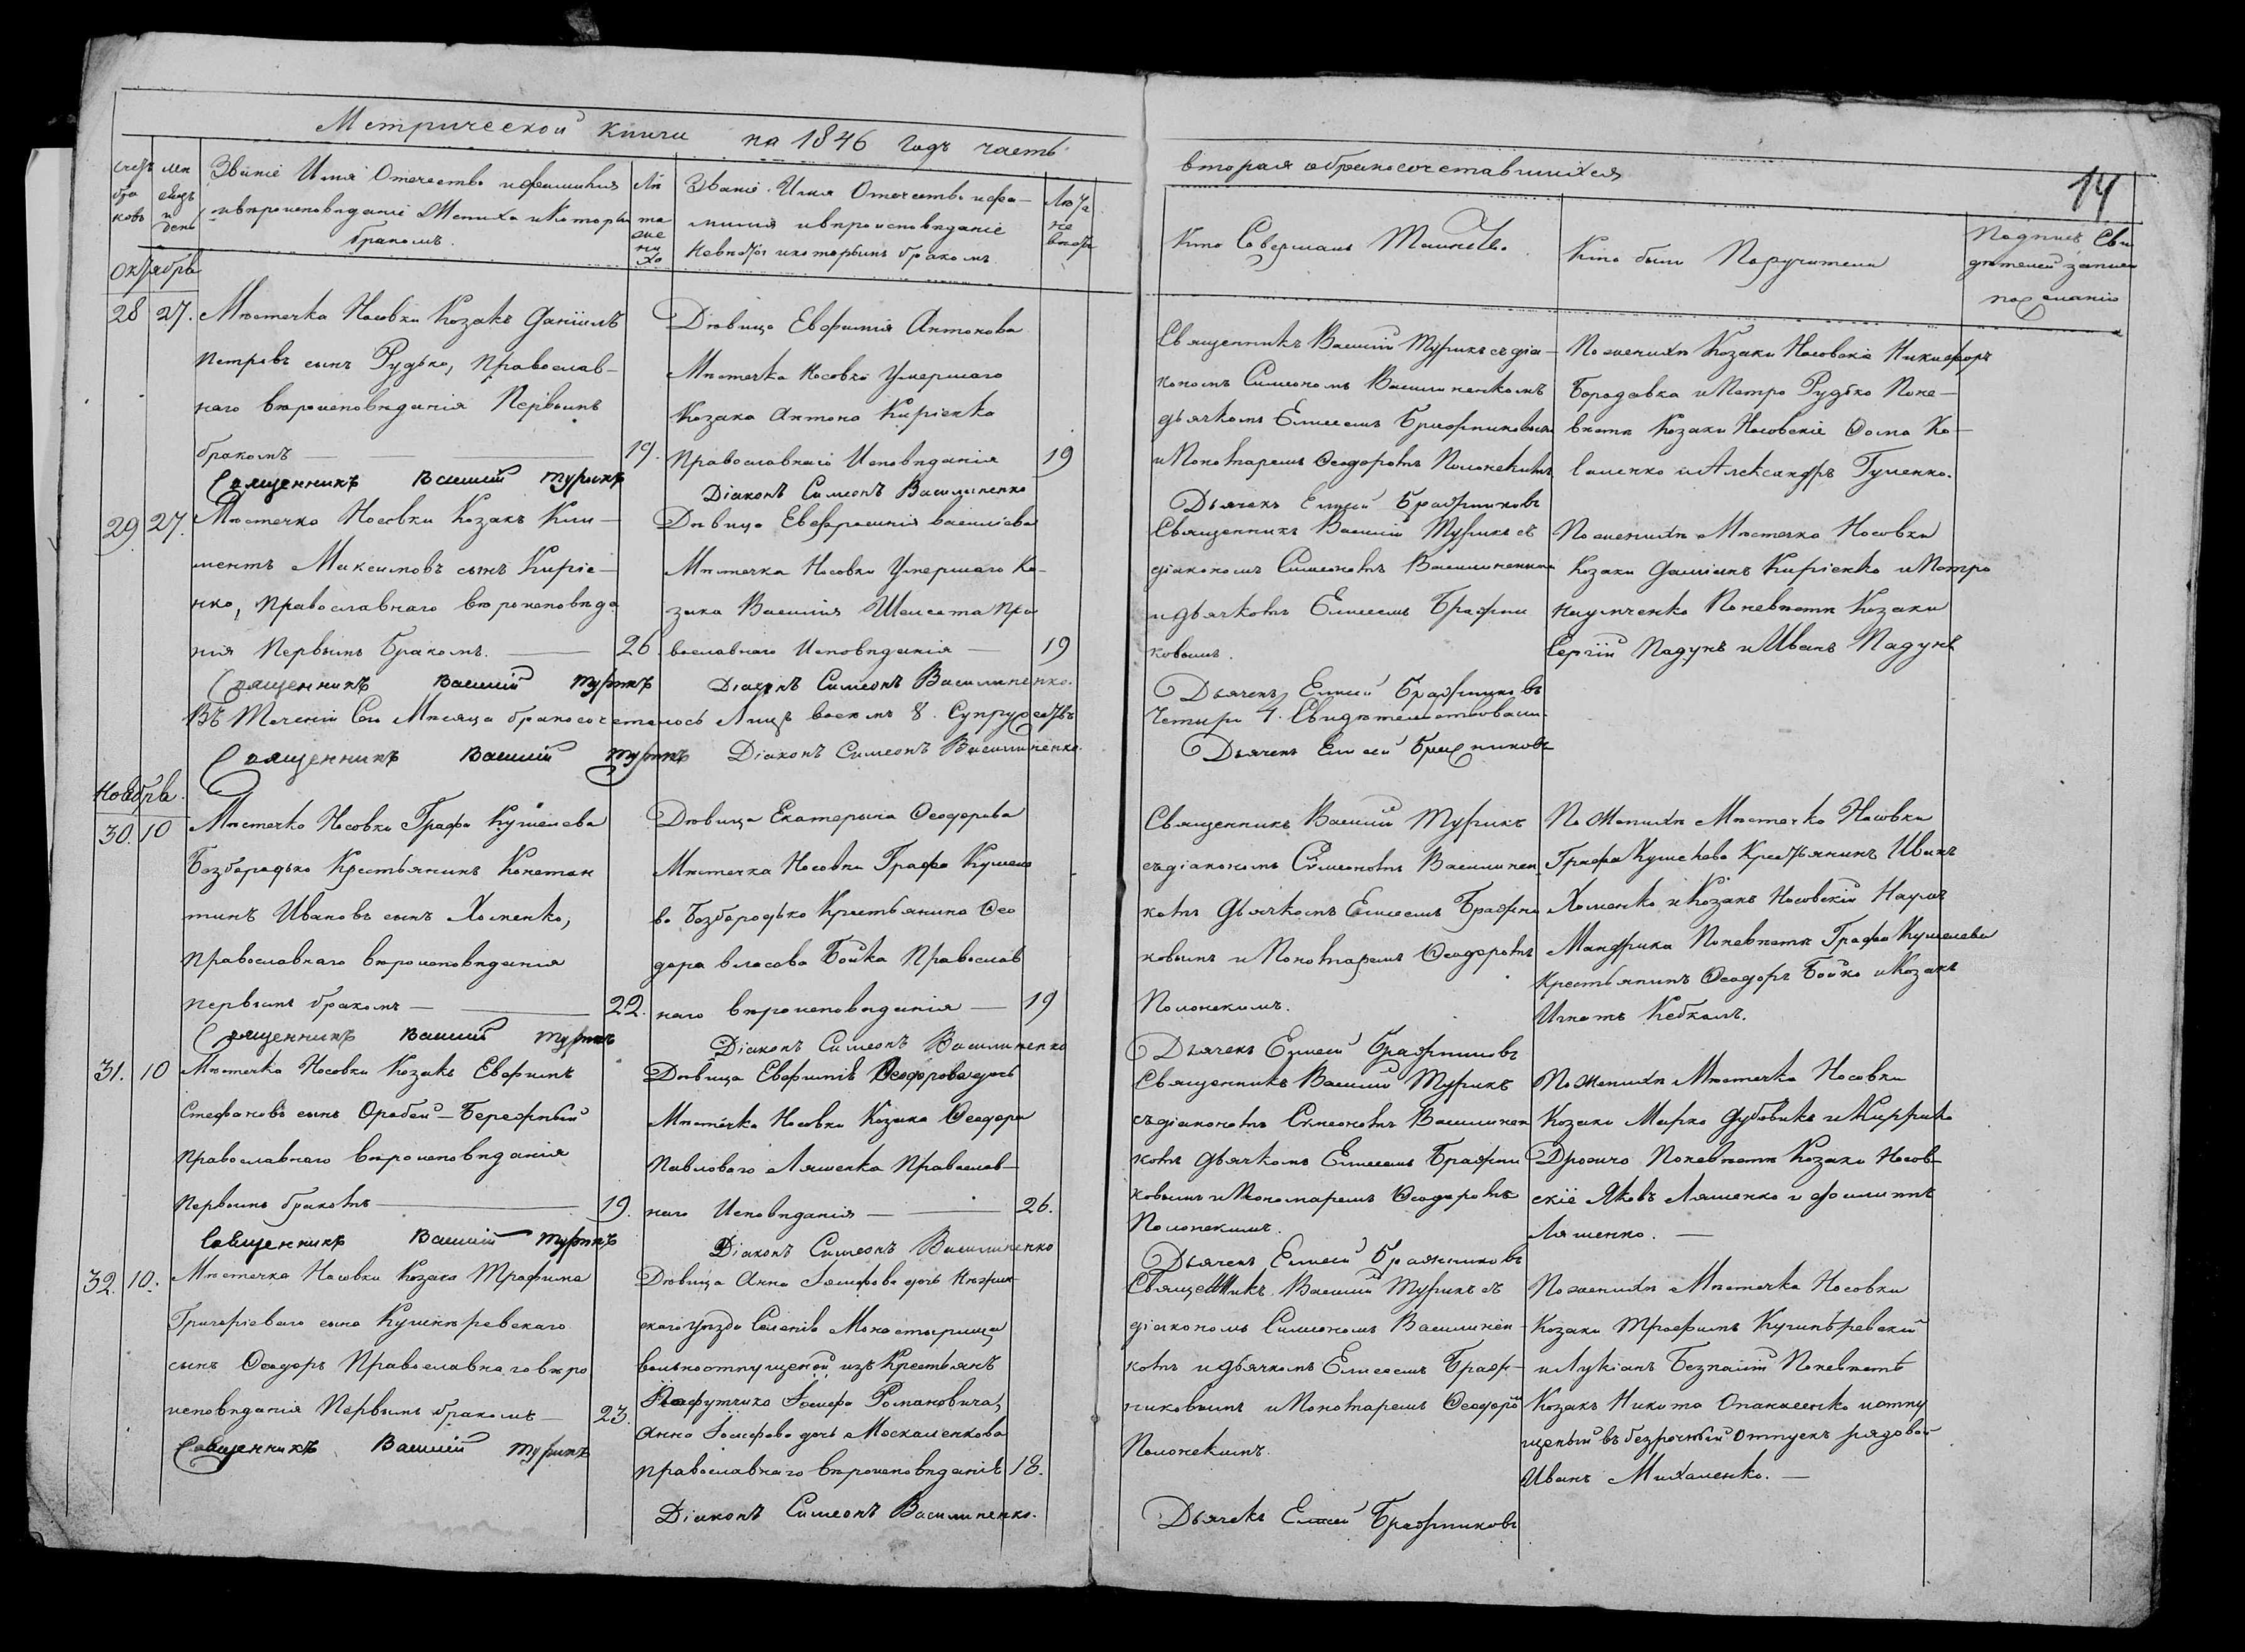 Метрической книги на 1846 годъ часть
вторая о бракосочетавшихся
14
Счетъ браковъ
Месяцъ и день
Званіе Имя Отечество и фамилия
и вѣроисповѣданіе Жениха и Которымъ
бракомъ.
Лѣта жениха
Званіе Имя Отечество и фа-
милия и вѣроисповѣданіе
Невѣсты и которымъ бракомъ
Лѣта невѣсты
Кто Совершалъ Таинство
Кто были Поручители
Подпись Сви
дѣтелей записи
по желанію
Октябрь
28 27. Мѣстечка Носовки Козакъ Даніилъ
Петровъ сынъ Рудько, Православ-
наго вѣроисповѣданія Первымъ
бракомъ 19.
Священникъ Василій Турикъ
Дѣвица Евфимія Антонова
Мѣстечка Носовки Умершаго
Козака Антона Кирієнка
Православнаго Исповѣданія 19
Діаконъ Симеонъ Василиненко
Священникъ Василій Турикъ съ діа-
кономъ Симеономъ Василиненкомъ
дьячкомъ Елисеемъ Бражниковымъ
и Пономаремъ Феодоромъ Полонскимъ
Дьячекъ Елисей Бражниковъ
По женихѣ Козаки Носовскіе Никифоръ
Бородавка и Петро Рудько По не-
вѣстѣ Козаки Носовскіе Фома Ко-
валенко и Александръ Гуменко.
29. 27. Мѣстечка Носовки Козакъ Кли-
ментъ Максимовъ сынъ Киріе-
нко, Православнаго вѣроисповѣда
нія Первымъ бракомъ. 26
Священникъ Василій Турикъ
Дѣвица Евфросинія Василіева
Мѣстечка Носовки Умершаго Ко-
зака Василия Шелеста Пра
вославнаго Исповѣданія 19
Діаконъ Симеонъ Василиненко.
Священникъ Василій Турикъ съ
діакономъ Симеономъ Василиненкомъ
и дьячкомъ Елисеемъ Бражни
ковымъ.
Дьячекъ Елисей Бражниковъ
По женихѣ Мѣстечка Носовки
Козаки Даміанъ Кирієнко и Петро
Наумченко По невѣстѣ Козаки
Сергій Падунъ и Иванъ Падунъ
Въ Теченіи Сего Мѣсяца бракосочеталось Лицъ восемь 8. Супружествъ
Четыри 4. Свидѣтельствовали.
Священникъ Василій Турикъ Діаконъ Симеонъ Василиненко.
Дьячекъ Елисей Бражниковъ
Ноябрь
30. 10 Мѣстечка Носовки Графа Кушелева
Безбородько Крестьянинъ Констан
тинъ Ивановъ сынъ Хоменко,
Православнаго вѣроисповѣданія
первымъ бракомъ 22.
Священникъ Василій Турикъ
Дѣвица Екатерына Феодорова
Мѣстечка Носовки Графа Кушеле
ва Безбородько Крестьянина Фео
дора Власова Бойка Православ
наго вѣроисповѣданія 19
Діаконъ Симеонъ Василиненко
Священникъ Василій Турикъ
съ діакономъ Симеономъ Василинен
комъ Дьячкомъ Елисеемъ Бражни
ковымъ и Пономаремъ Феодоромъ
Полонскимъ.
Дьячекъ Елисей Бражниковъ
По Женихѣ Мѣстечка Носовки
Графа Кушелева Крестьянинъ Иванъ
Хоменко и Козакъ Носовскій Наумъ
Мандрика По невѣстѣ Графа Кушелева
Крестьянинъ Феодоръ Бойко и Козакъ
Игнатъ Кебкалъ.
31. 10 Мѣстечка Носовки Козакъ Евфимъ
Стефановъ сынъ Оробей-Бережный
Православнаго вѣроисповѣданія
Первымъ бракомъ 19.
Священникъ Василій Турикъ
Дѣвица Евфимія Феодорова дочь
Мѣстечка Носовки Козака Феодора
Павлового Ляшенка Православ-
наго Исповѣданія 26.
Діаконъ Симеонъ Василиненко
Священникъ Василій Турикъ
съ діакономъ Симеономъ Василинен
комъ дьячкомъ Елисеемъ Бражни
ковымъ и Пономаремъ Феодоромъ
Полонскимъ.
Дьячекъ Елисей Бражниковъ
По Женихѣ Мѣстечка Носовки
Козаки Марко Дубовикъ и
По невѣстѣ Козаки Носов-
скіе Яковъ Ляшенко и Филиппъ
Ляшенко.
32. 10. Мѣстечка Носовки Козака Трофима
Григоріевого сына Кушнѣревскаго
сынъ Феодоръ Православнаго вѣро
исповѣданія Первымъ бракомъ 23.
Священникъ Василій Турикъ
Дѣвица Анна Іосифова дочь Нѣжин-
скаго уѣзда Селенія Монастырища
вольноотпущеной изъ Крестьянъ
Іосифа Романовича,
Анна Іосифова дочь Москаленкова
православнаго вѣроисповѣданія 18.
Діаконъ Симеонъ Василиненко.
Священникъ Василій Турикъ съ
діакономъ Симеономъ Василинен-
комъ и дьячкомъ Елисеемъ Браж-
никовымъ и Пономаремъ Феодоромъ
Полонскимъ.
Дьячекъ Елисей Бражниковъ
По женихѣ Мѣстечка Носовки
Козаки Трофимъ Кушнѣревскій
и Лукіанъ Безпалый По невѣстѣ
Козакъ Никита Опанасенко и отпу
щеный въ безрочный отпускъ рядовой
Иванъ Михаленко.